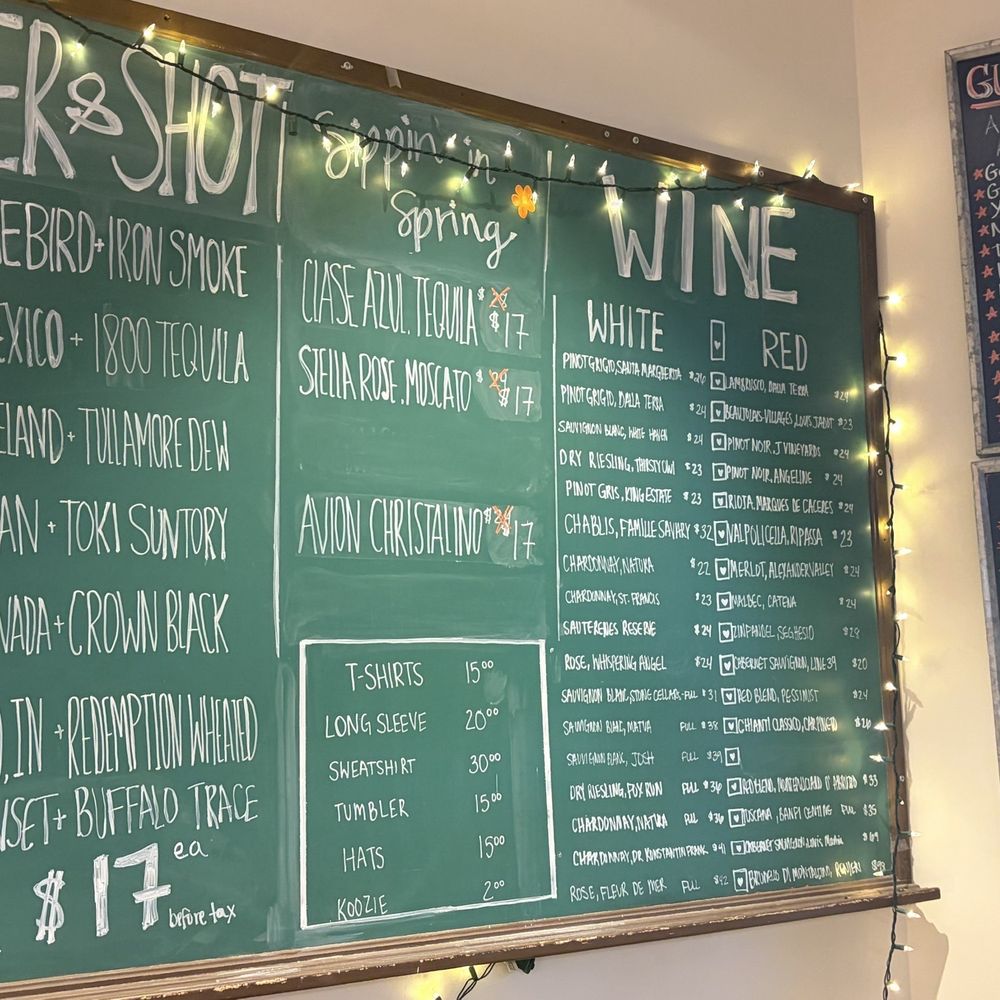 ER & SHOT
EBIRD + IRON SMOKE
EXICO + 1800 TEQUILA
ELAND + TULLAMORE DEW
AN + TOKI SUNTORY
NADA + CROWN BLACK
, IN + REDEMPTION WHEATED
SET + BUFFALO TRACE
$17 ea
before tax
Sippin' in
Spring
CLASE AZUL, TEQUILA $17
STELLA ROSE, MOSCATO $17
AVION CHRISTALINO $17
T-SHIRTS 15⁰⁰
LONG SLEEVE 20⁰⁰
SWEATSHIRT 30⁰⁰
TUMBLER 15⁰⁰
HATS 15⁰⁰
KOOZIE 2⁰⁰
WINE
WHITE
PINOT GRIGIO, SANTA MARGHERITA $26
PINOT GRIGIO, DALLA TERRA $24
SAUVIGNON BLANC, WHITE HAVEN $24
DRY RIESLING, THIRSTY OWL $23
PINOT GRIS, KING ESTATE $23
CHABLIS, FAMILLE SAVARY $32
CHARDONNAY, NATURA $22
CHARDONNAY, ST. FRANCIS $23
SAUTERENES RESERVE $24
ROSE, WHISPERING ANGEL $24
SAUVIGNON BLANC, STONE CELLARS - FULL $31
SAUVIGNON BLANC, MATUA FULL $38
SAUVIGNON BLANC, JOSH FULL $39
DRY RIESLING, FOX RUN FULL $36
CHARDONNAY, NATURA FULL $36
CHARDONNAY, DR. KONSTANTIN FRANK $41
ROSE, FLEUR DE MER FULL $42
RED
LAMBRUSCO, DALLA TERRA $24
BEAUJOLAIS-VILLAGES, LOUIS JADOT $23
PINOT NOIR, J VINEYARDS $24
PINOT NOIR, ANGELINE $24
RIOJA, MARQUES DE CACERES $24
VALPOLICELLA, RIPASSA $23
MERLOT, ALEXANDER VALLEY $24
MALBEC, CATENA $24
ZINFANDEL, SEGHESIO $28
CABERNET SAUVIGNON, LINE 39 $20
RED BLEND, PESSIMIST $24
CHIANTI CLASSICO, CARPINETO $26
$33
TOSCANA, BANFI CENTINE FULL $35
CABERNET SAUVIGNON, LOUIS $69
BRUNELLO DI MONTALCINO,
GU